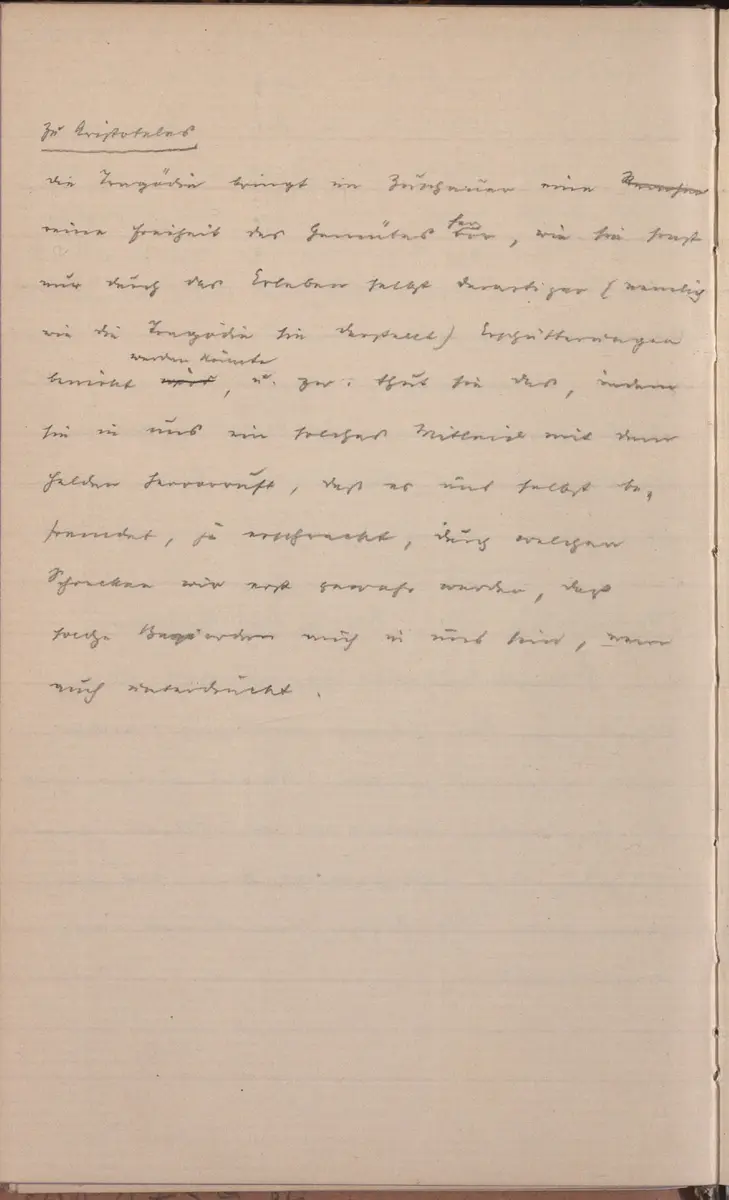 Zu Aristoteles
Die Tragödie bringt im Zuschauer eine
reine Freiheit des Gemütes hervor, wie sie sonst
nur durch das Erleben selbst derartiger (nemlich
wie die Tragödie sie darstellt) Erschütterungen
bewirkt werden könnte, u. zw. thut sie das, indem
sie in uns ein solches Mitleid mit dem
Helden hervorruft, daß es uns selbst be-
fremdet, ja erschreckt, durch welchen
Schrecken wir erst gewahr werden, daß
solche Begierden auch in uns sind, wenn
auch unterdrückt.